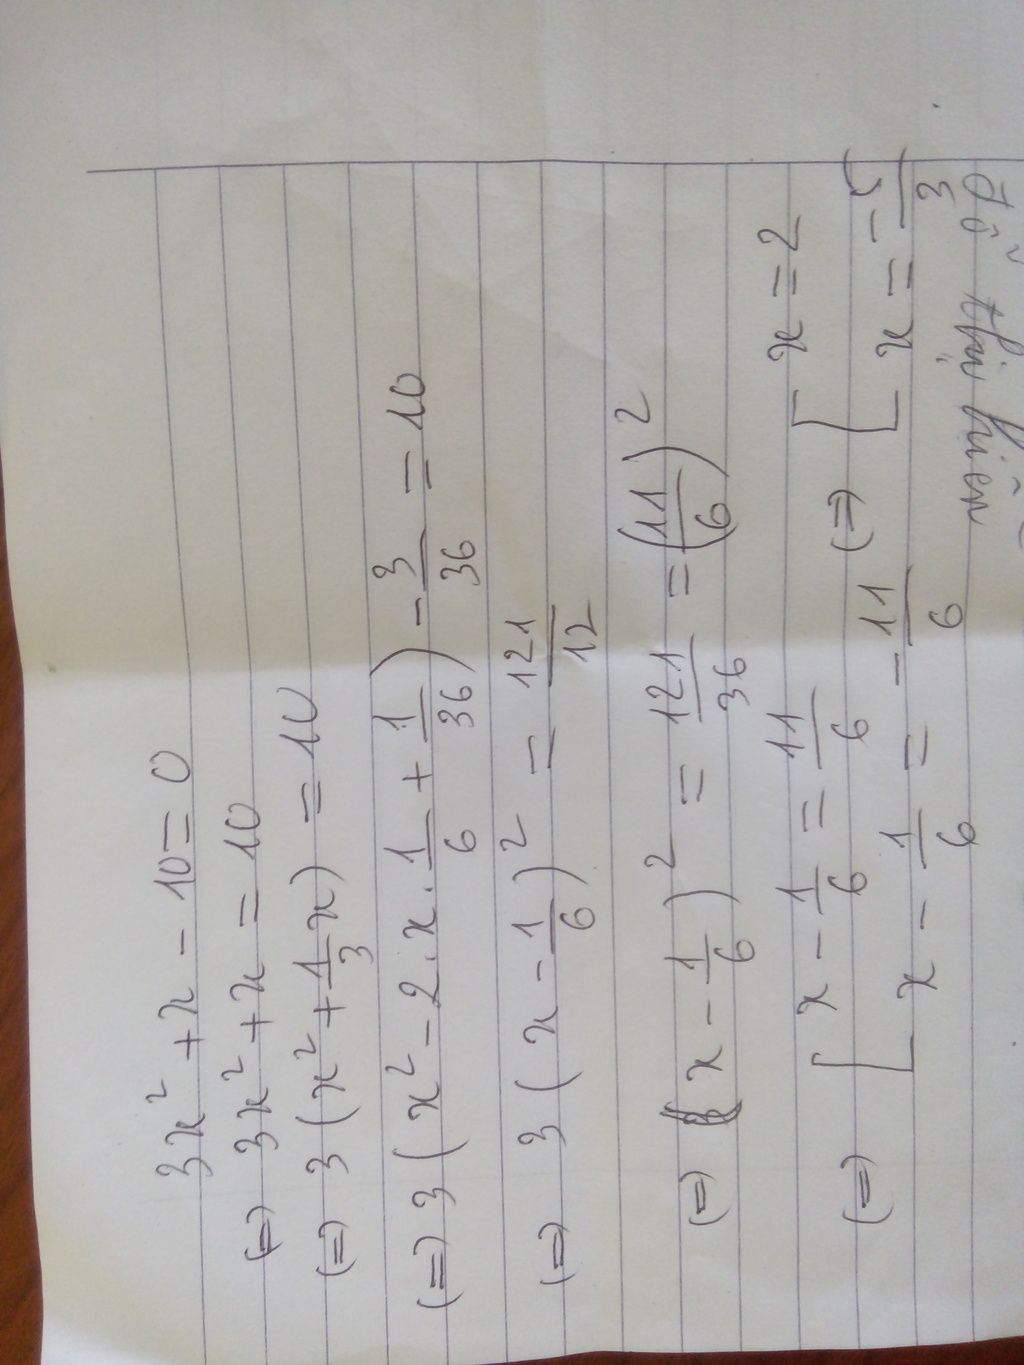 3x² + x - 10 = 0
(=) 3x² + x = 10
(=) 3(x² + 1/3 x) = 10
(=) 3(x² - 2.x.1/6 + 1/36) - 3/36 = 10
(=) 3(x - 1/6)² = 121/12
(=) (x - 1/6)² = 121/36 = (11/6)²
(=) [ x - 1/6 = 11/6 (=) [ x = 2
x - 1/6 = - 11/6 x = - 5/3
Đỗ thị hiền